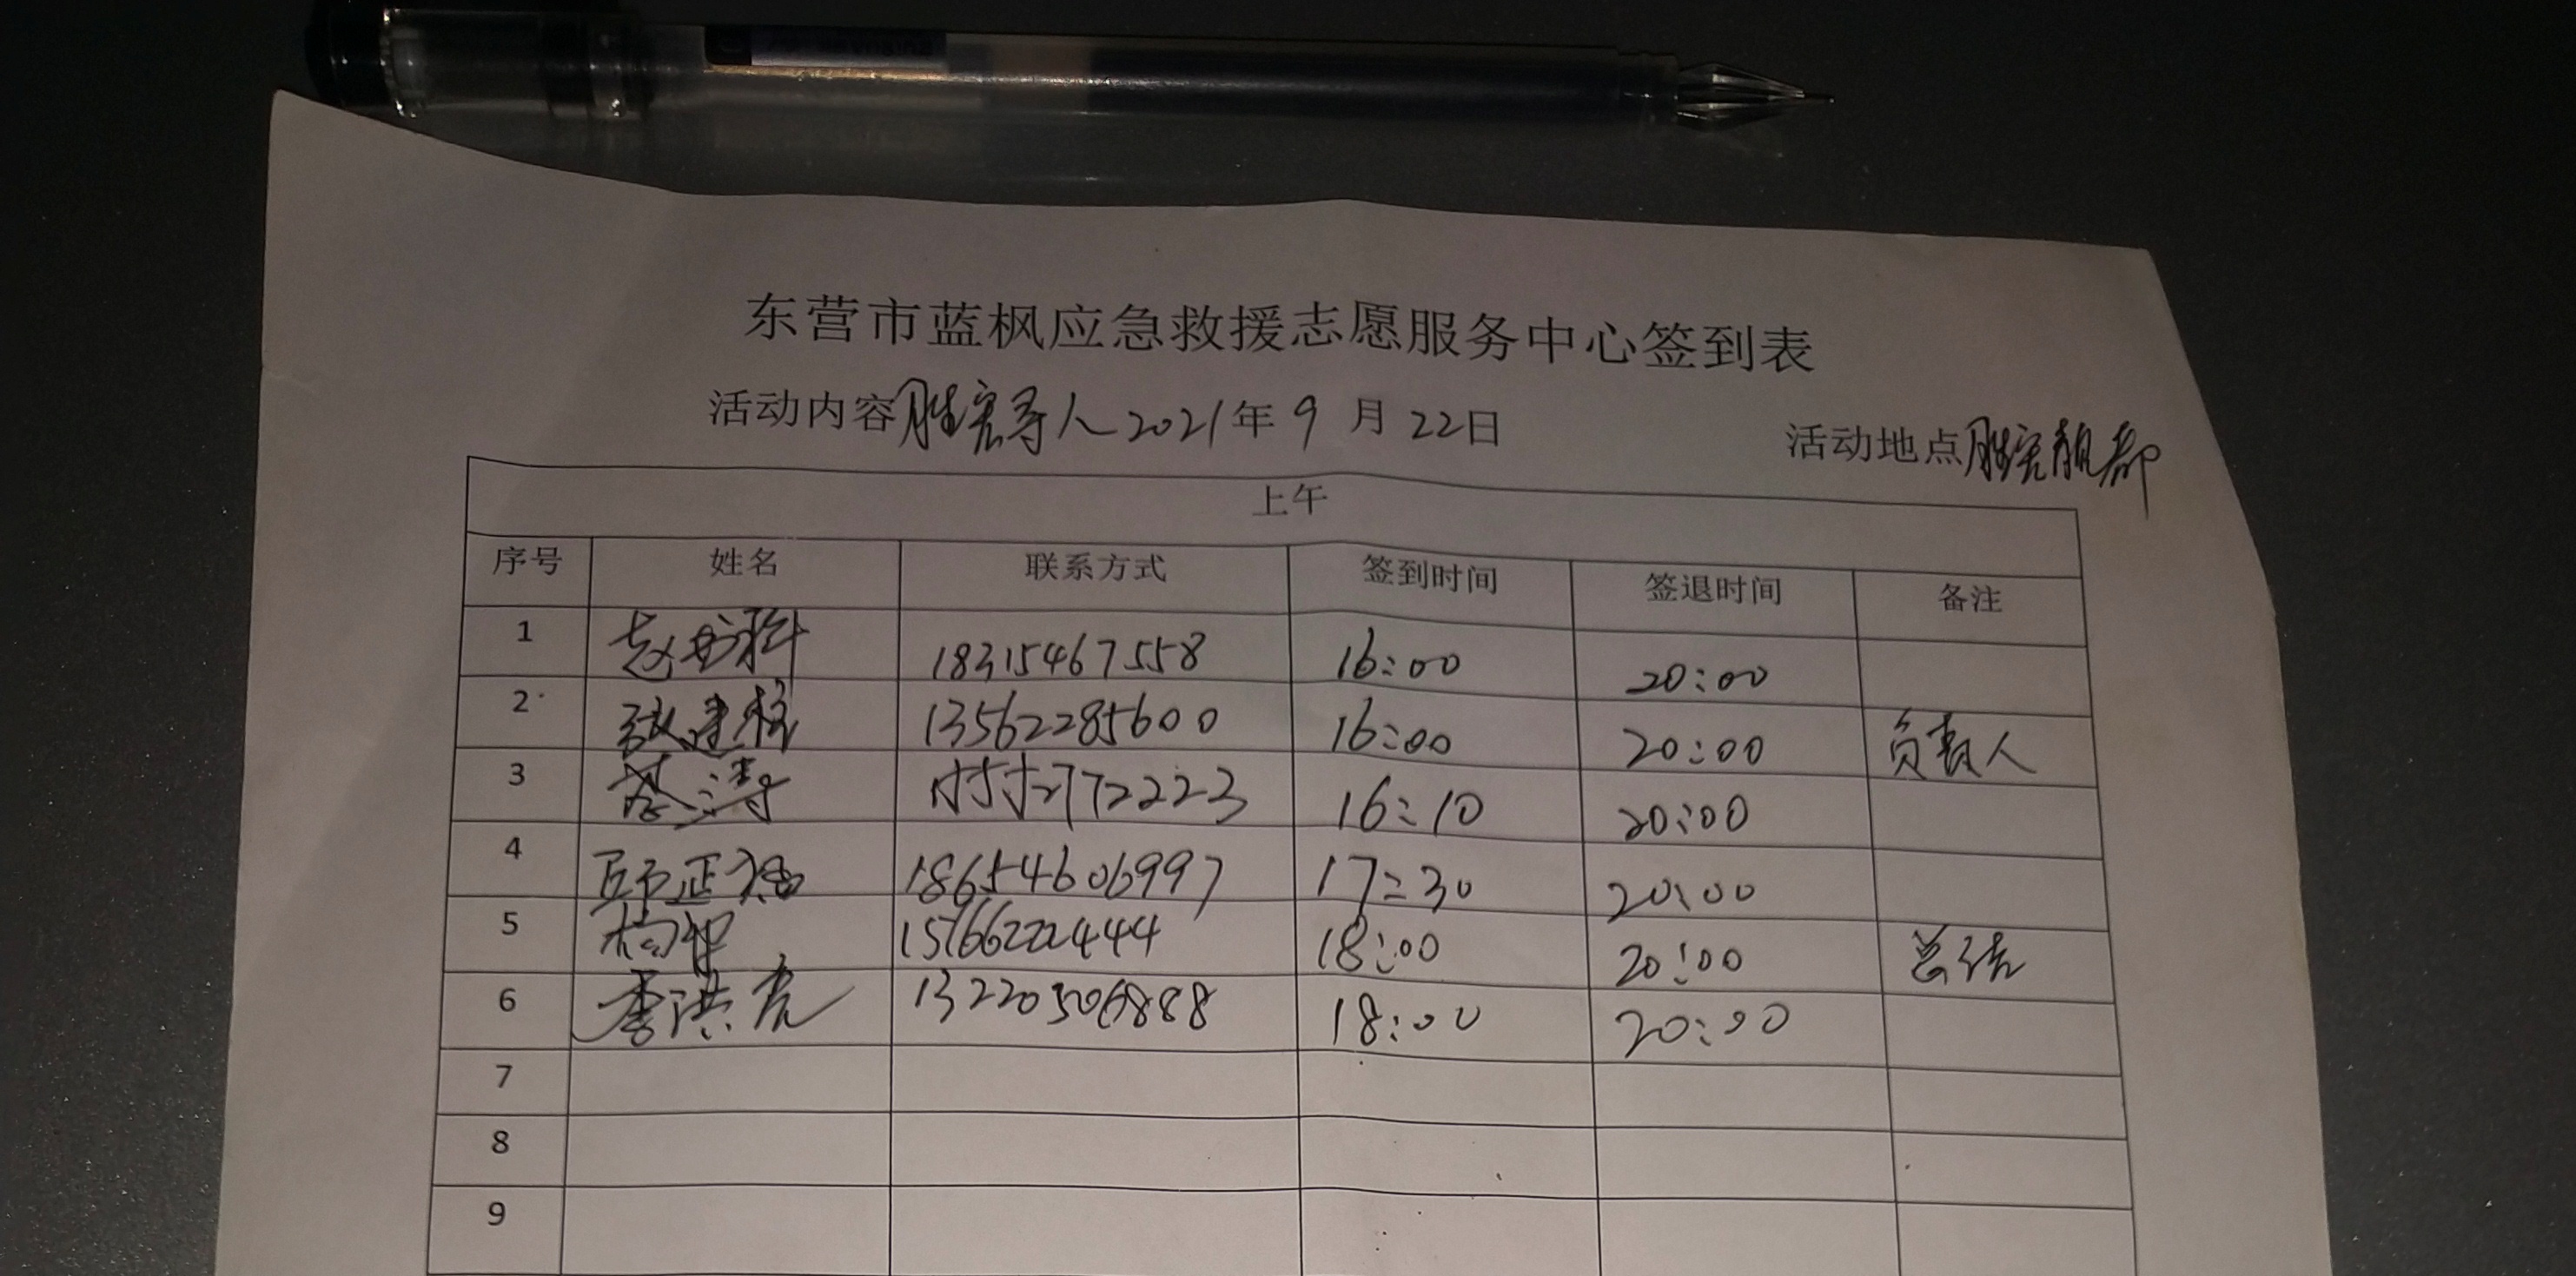 东营市蓝枫应急救援志愿服务中心签到表
活动内容胜宏寻人2021年9月22日 活动地点胜宏靓都
上午
序号 姓名 联系方式 签到时间 签退时间 备注
1 赵 18315467558 16:00 20:00
2 张建 13562285600 16:00 20:00 负责人
3 蔡涛 16:10 20:00
4 正 18654606997 17:30 20:00
5 杨 15766222444 18:00 20:00 总结
6 李洪亮 13220506888 18:00 20:00
7
8
9